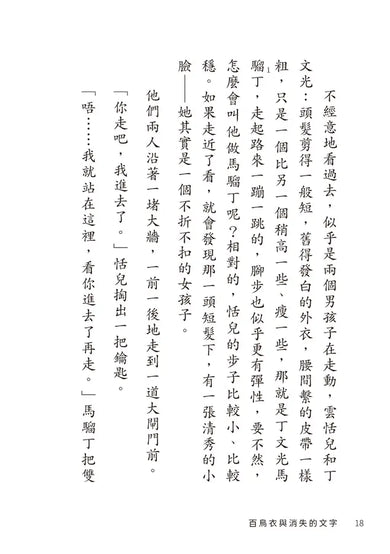 不經意地看過去，似乎是兩個男孩子在走動，雲恬兒和丁
文光：頭髮剪得一般短，舊得發白的外衣，腰間繫的皮帶一樣
粗，只是一個比另一個稍高一些、瘦一些，那就是丁文光馬
騮丁，走起路來一蹦一跳的，腳步也似乎更有彈性，要不然，
1
怎麼會叫他做馬騮丁呢？相對的，恬兒的步子比較小、比較
穩。如果走近了看，就會發現那一頭短髮下，有一張清秀的小
臉——她其實是一個不折不扣的女孩子。
他們兩人沿著一堵大牆，一前一後地走到一道大閘門前。
「你走吧，我進去了。」恬兒掏出一把鑰匙。
「唔……我就站在這裡，看你進去了再走。」馬騮丁把雙
百鳥衣與消失的文字 18